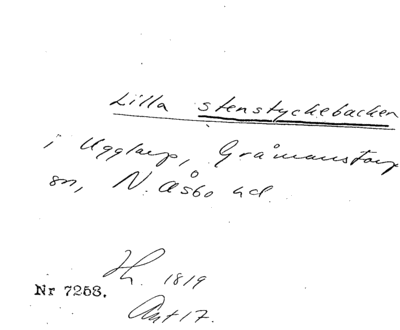 Lilla stenstyckebacken
i Ugglarp, Gråmanstorp
sn, N. Åsbo hd.
Hh. 1819
Nr 7258.
Akt 17.